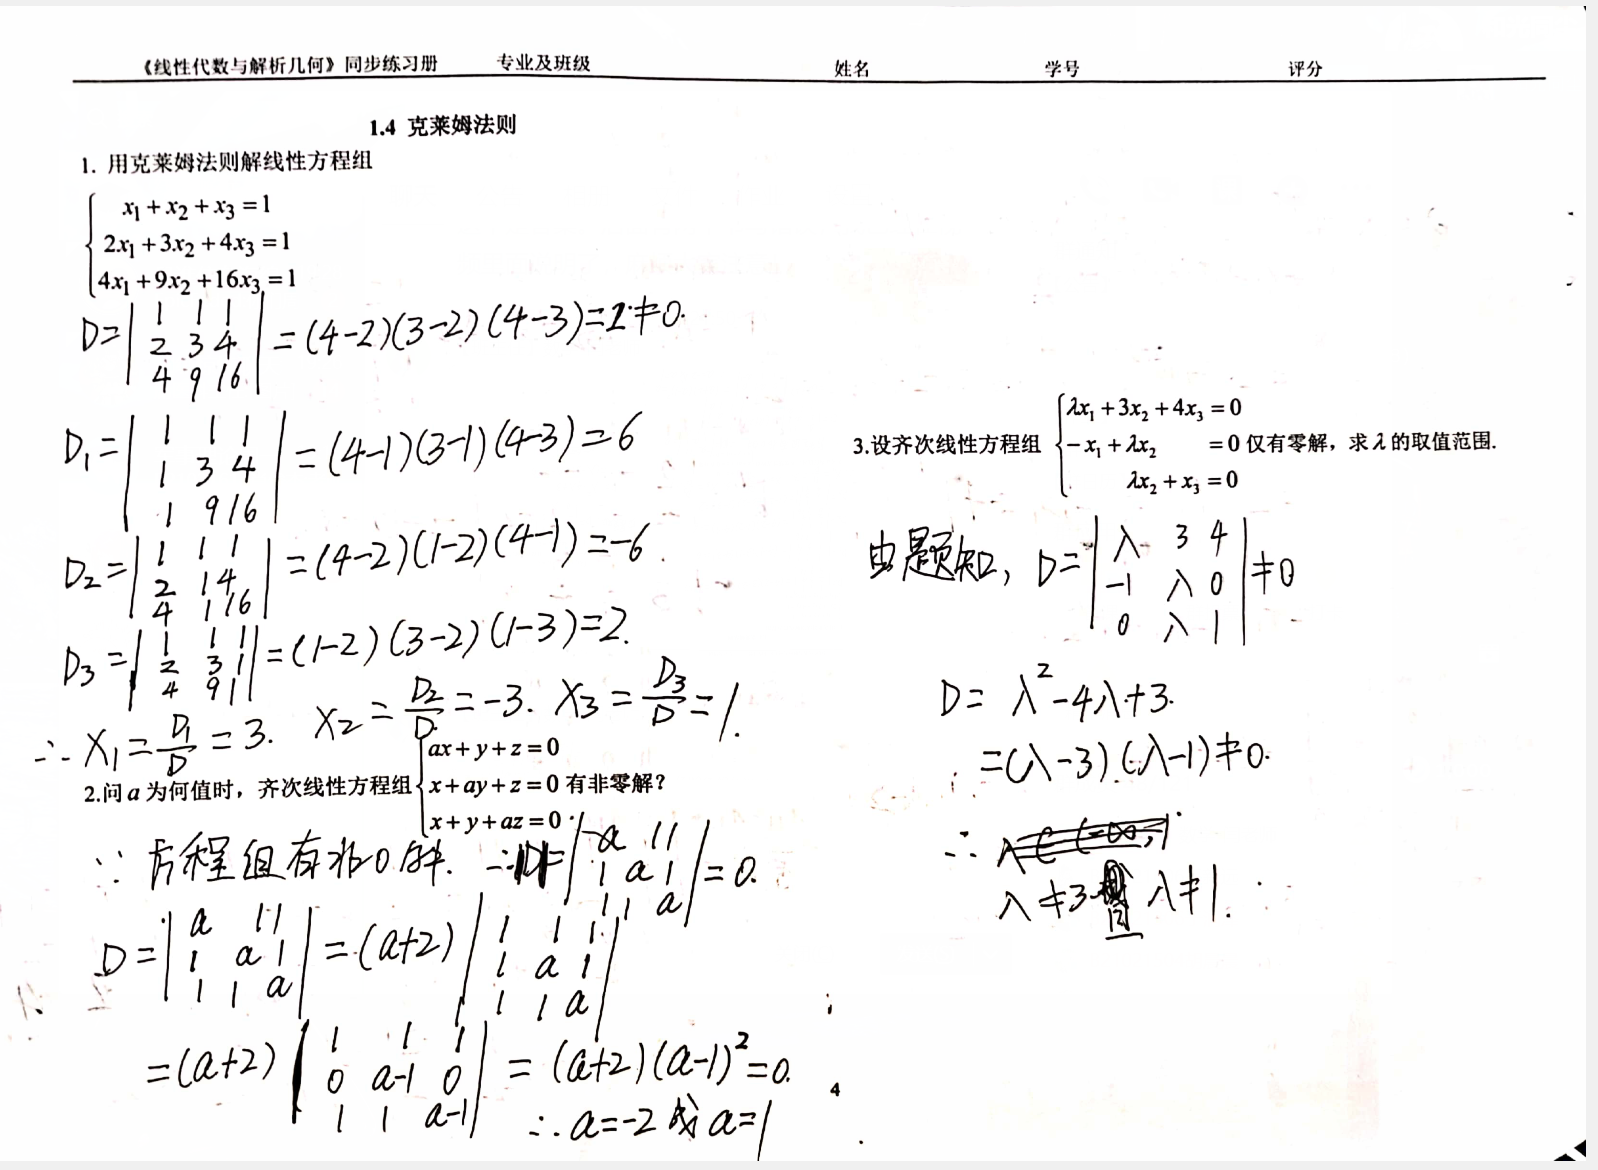 《线性代数与解析几何》同步练习册 专业及班级 姓名 学号 评分
1.4 克莱姆法则
1. 用克莱姆法则解线性方程组
x₁+x₂+x₃=1
2x₁+3x₂+4x₃=1
4x₁+9x₂+16x₃=1
D=| 1 1 1
2 3 4
4 9 16 | =(4-2)(3-2)(4-3)=2≠0.
D₁=| 1 1 1
1 3 4
1 9 16 | =(4-1)(3-1)(4-3)=6
D₂=| 1 1 1
2 1 4
4 1 16 | =(4-2)(1-2)(4-1)=-6
D₃=| 1 1 1
2 3 1
4 9 1 | =(1-2)(3-2)(1-3)=2.
∴ X₁=D₁/D=3. X₂=D₂/D=-3. X₃=D₃/D=1.
2.问a为何值时，齐次线性方程组 { ax+y+z=0
x+ay+z=0 有非零解？
x+y+az=0
∵方程组有非0解. ∴D=| a 1 1
1 a 1
1 1 a | =0.
D=| a 1 1
1 a 1
1 1 a | =(a+2) | 1 1 1
1 a 1
1 1 a |
=(a+2) | 1 1 1
0 a-1 0
1 1 a-1 | =(a+2)(a-1)²=0.
∴a=-2或a=1
3.设齐次线性方程组 { λx₁+3x₂+4x₃=0
-x₁+λx₂ =0 仅有零解，求λ的取值范围.
λx₂+x₃=0
由题知，D=| λ 3 4
-1 λ 0
0 λ 1 | ≠0
D= λ²-4λ+3.
=(λ-3)(λ-1)≠0.
∴
λ≠3 且 λ≠1.
4